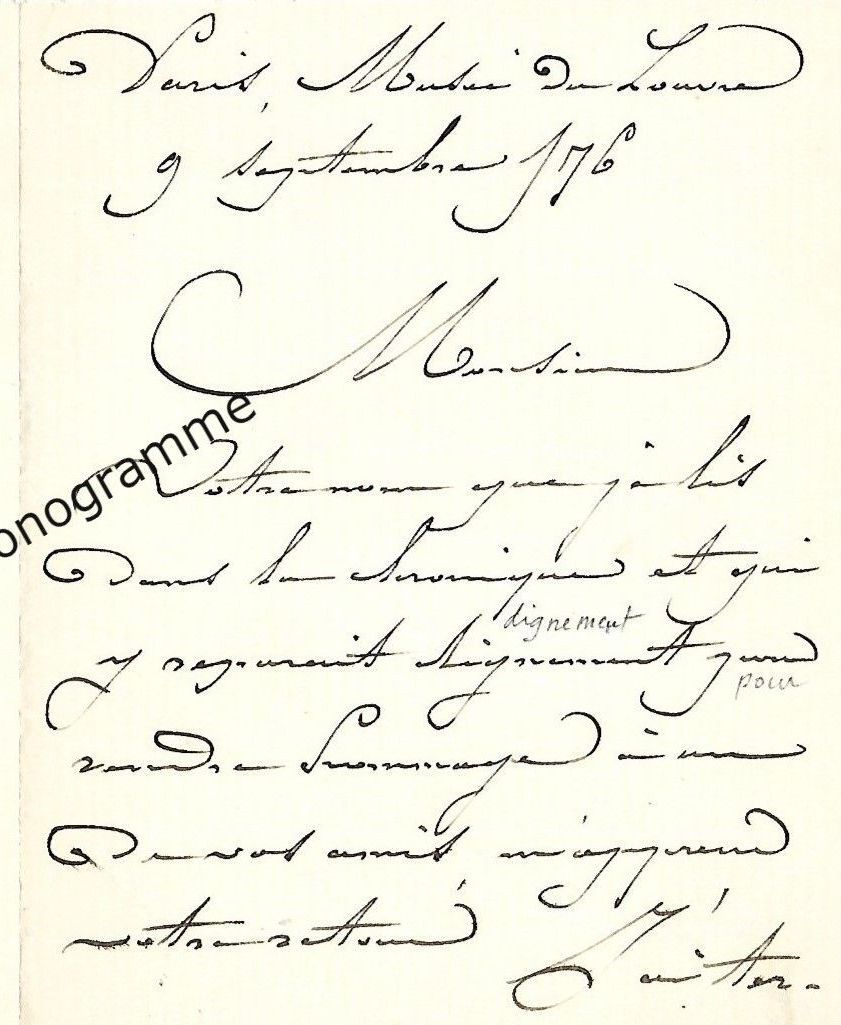 Paris, Musée du Louvre
9 septembre 176
Monsieur
onogramme
Votre nom que je lis
Dans la chronique et qui
dignement
y reparait dignement pour
pour
rendre hommage à un
De vos amis, m'apprend
votre retour. J'ai ter-